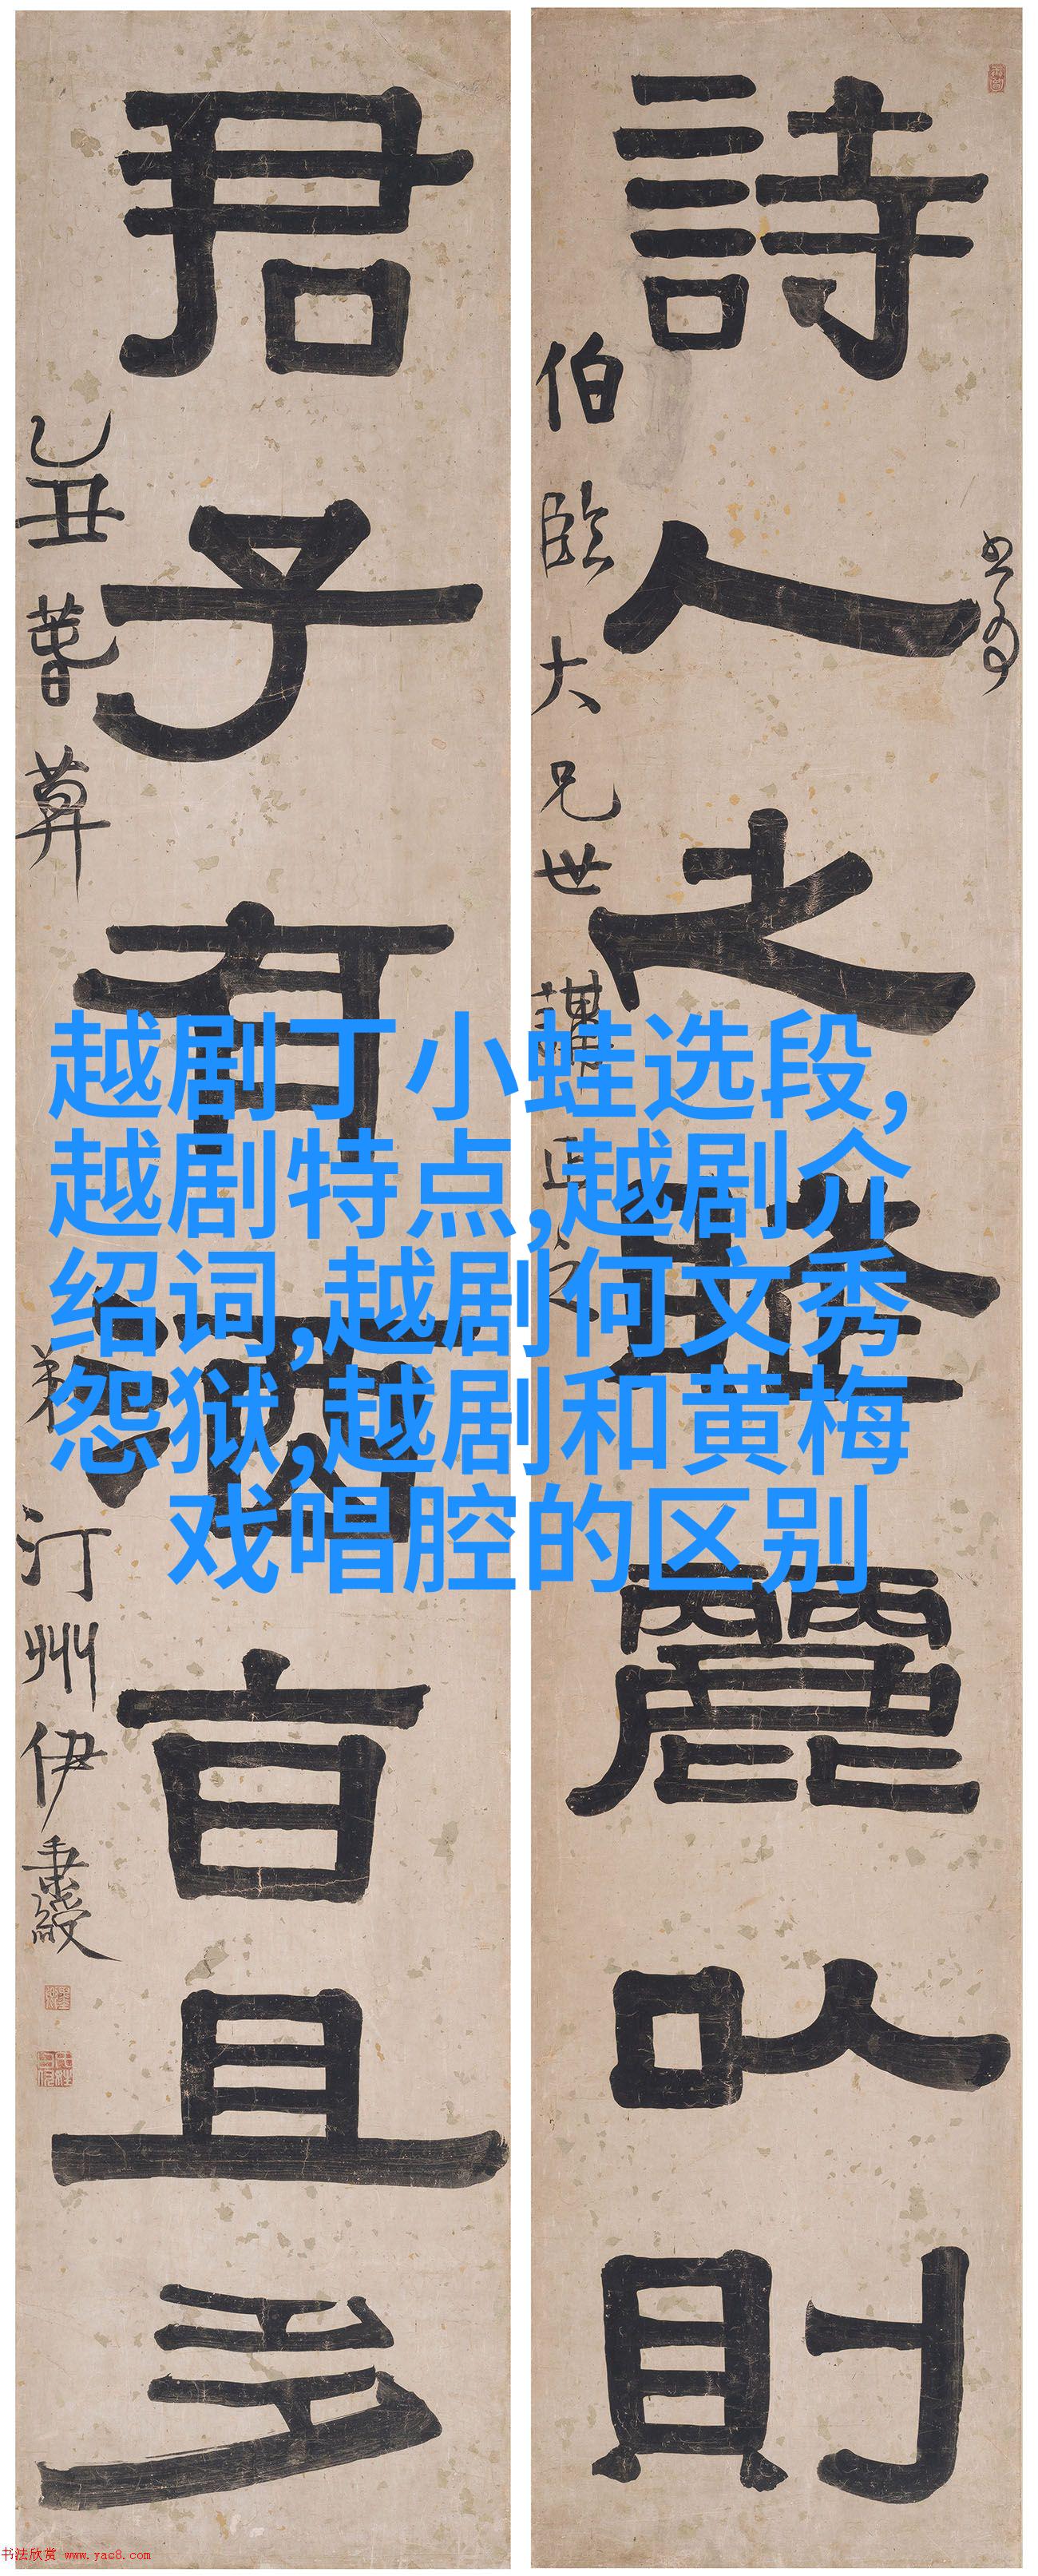 詩人之賦麗以則
書為
伯臨大兄世講正之
君子有酒旨且多
乙丑
弟汀州伊秉綬
越剧丁小蛙选段,
越剧特点,越剧介
绍词,越剧何文秀
怨狱,越剧和黄梅
戏唱腔的区别
书法欣赏 www.yac8.com